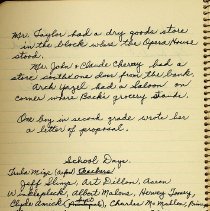 Mr. Taylor had a dry goods store
in the block where the Opera House
stood.
Mr. John & Claude Cheray had a
store south one door from the bank.
Arch Yazel had a Saloon on
corner where Backs grocery stands.
One boy in second grade wrote her
a letter of proposal.
School Days.
Trula Mize (wife) Teachers
Jeff Slinge, Art Dillon, Aaron
Albert Malone, Harvey Toney,
Clyde Amick Charles Mc